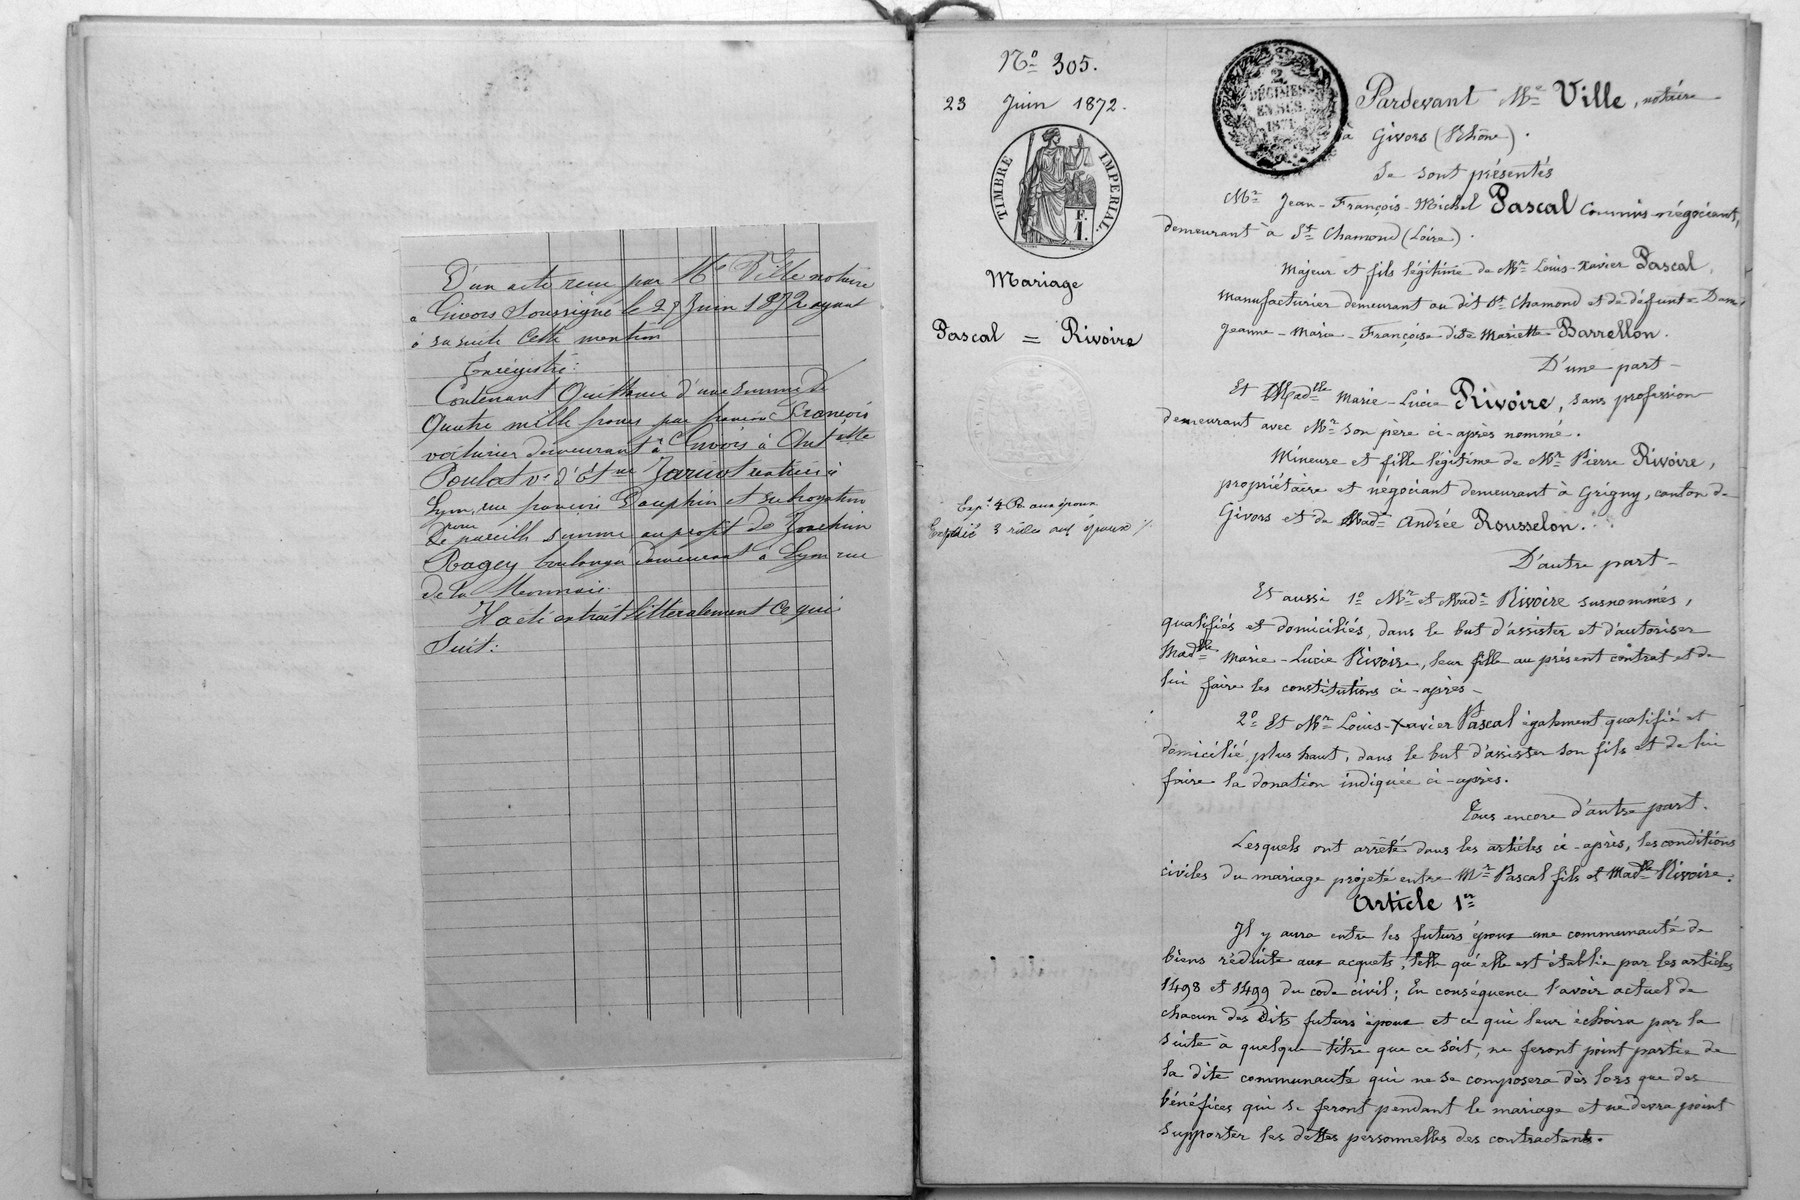 D'un acte reçu par Me Ville notaire
a Givors Soussigné le 27 Juin 1872 ayant
à sa suite cette mention
Enregistré:
Contenant Quittance d'une somme de
Quatre mille francs par François
voiturier demeurant à Givors à Antte
Poulat ve d'Etne rentière à
Lyon, rue françois Dauphin et subrogation
pour
de pareille somme au profit de Joachim
Ragey boulanger demeurant à Lyon rue
de la Monnaie.
Il a été extrait littéralement ce qui
Suit:
No 305.
23 Juin 1872.
TIMBRE IMPERIAL.
F.
1.
Mariage
Pascal = Rivoire
Expé 4 Re aux époux
Expédié 3 rôles aux époux
2
DÉCIMES
EN SUS
1871
Pardevant Me Ville, notaire
à Givors (Rhône).
Se sont présentés
Mr Jean-François-Michel Pascal Commis-négociant,
demeurant à St Chamond (Loire).
Majeur et fils légitime de Mr Louis-Xavier Pascal,
manufacturier demeurant au dit St Chamond et de défunte Dame
Jeanne-Marie-Françoise dite Mariette Barrellon.
D'une part
Et Madlle Marie-Lucie Rivoire, sans profession
demeurant avec Mr son père ci-après nommé.
Mineure et fille légitime de Mr Pierre Rivoire,
propriétaire et négociant demeurant à Grigny, canton de
Givors et de Made Andrée Rousselon.
D'autre part
Et aussi 1o Mr et Made Rivoire susnommés,
qualifiés et domiciliés, dans le but d'assister et d'autoriser
Madlle Marie-Lucie Rivoire, leur fille au présent contrat et de
lui faire les constitutions ci-après
2o Et Mr Louis-Xavier Pascal également qualifié et
domicilié plus haut, dans le but d'assister son fils et de lui
faire la donation indiquée ci-après.
Tous encore d'autre part.
Lesquels ont arrêté dans les articles ci-après, les conditions
civiles du mariage projeté entre Mr Pascal fils et Madlle Rivoire.
Article 1er
Il y aura entre les futurs époux une communauté de
biens réduite aux acquets, telle qu'elle est établie par les articles
1498 et 1499 du code civil; En conséquence l'avoir actuel de
chacun des Dits futurs époux et ce qui leur échoira par la
suite à quelque titre que ce soit, ne feront point partie de
la dite communauté qui ne se composera dès lors que des
bénéfices qui se feront pendant le mariage et ne devra point
supporter les dettes personnelles des contractants.